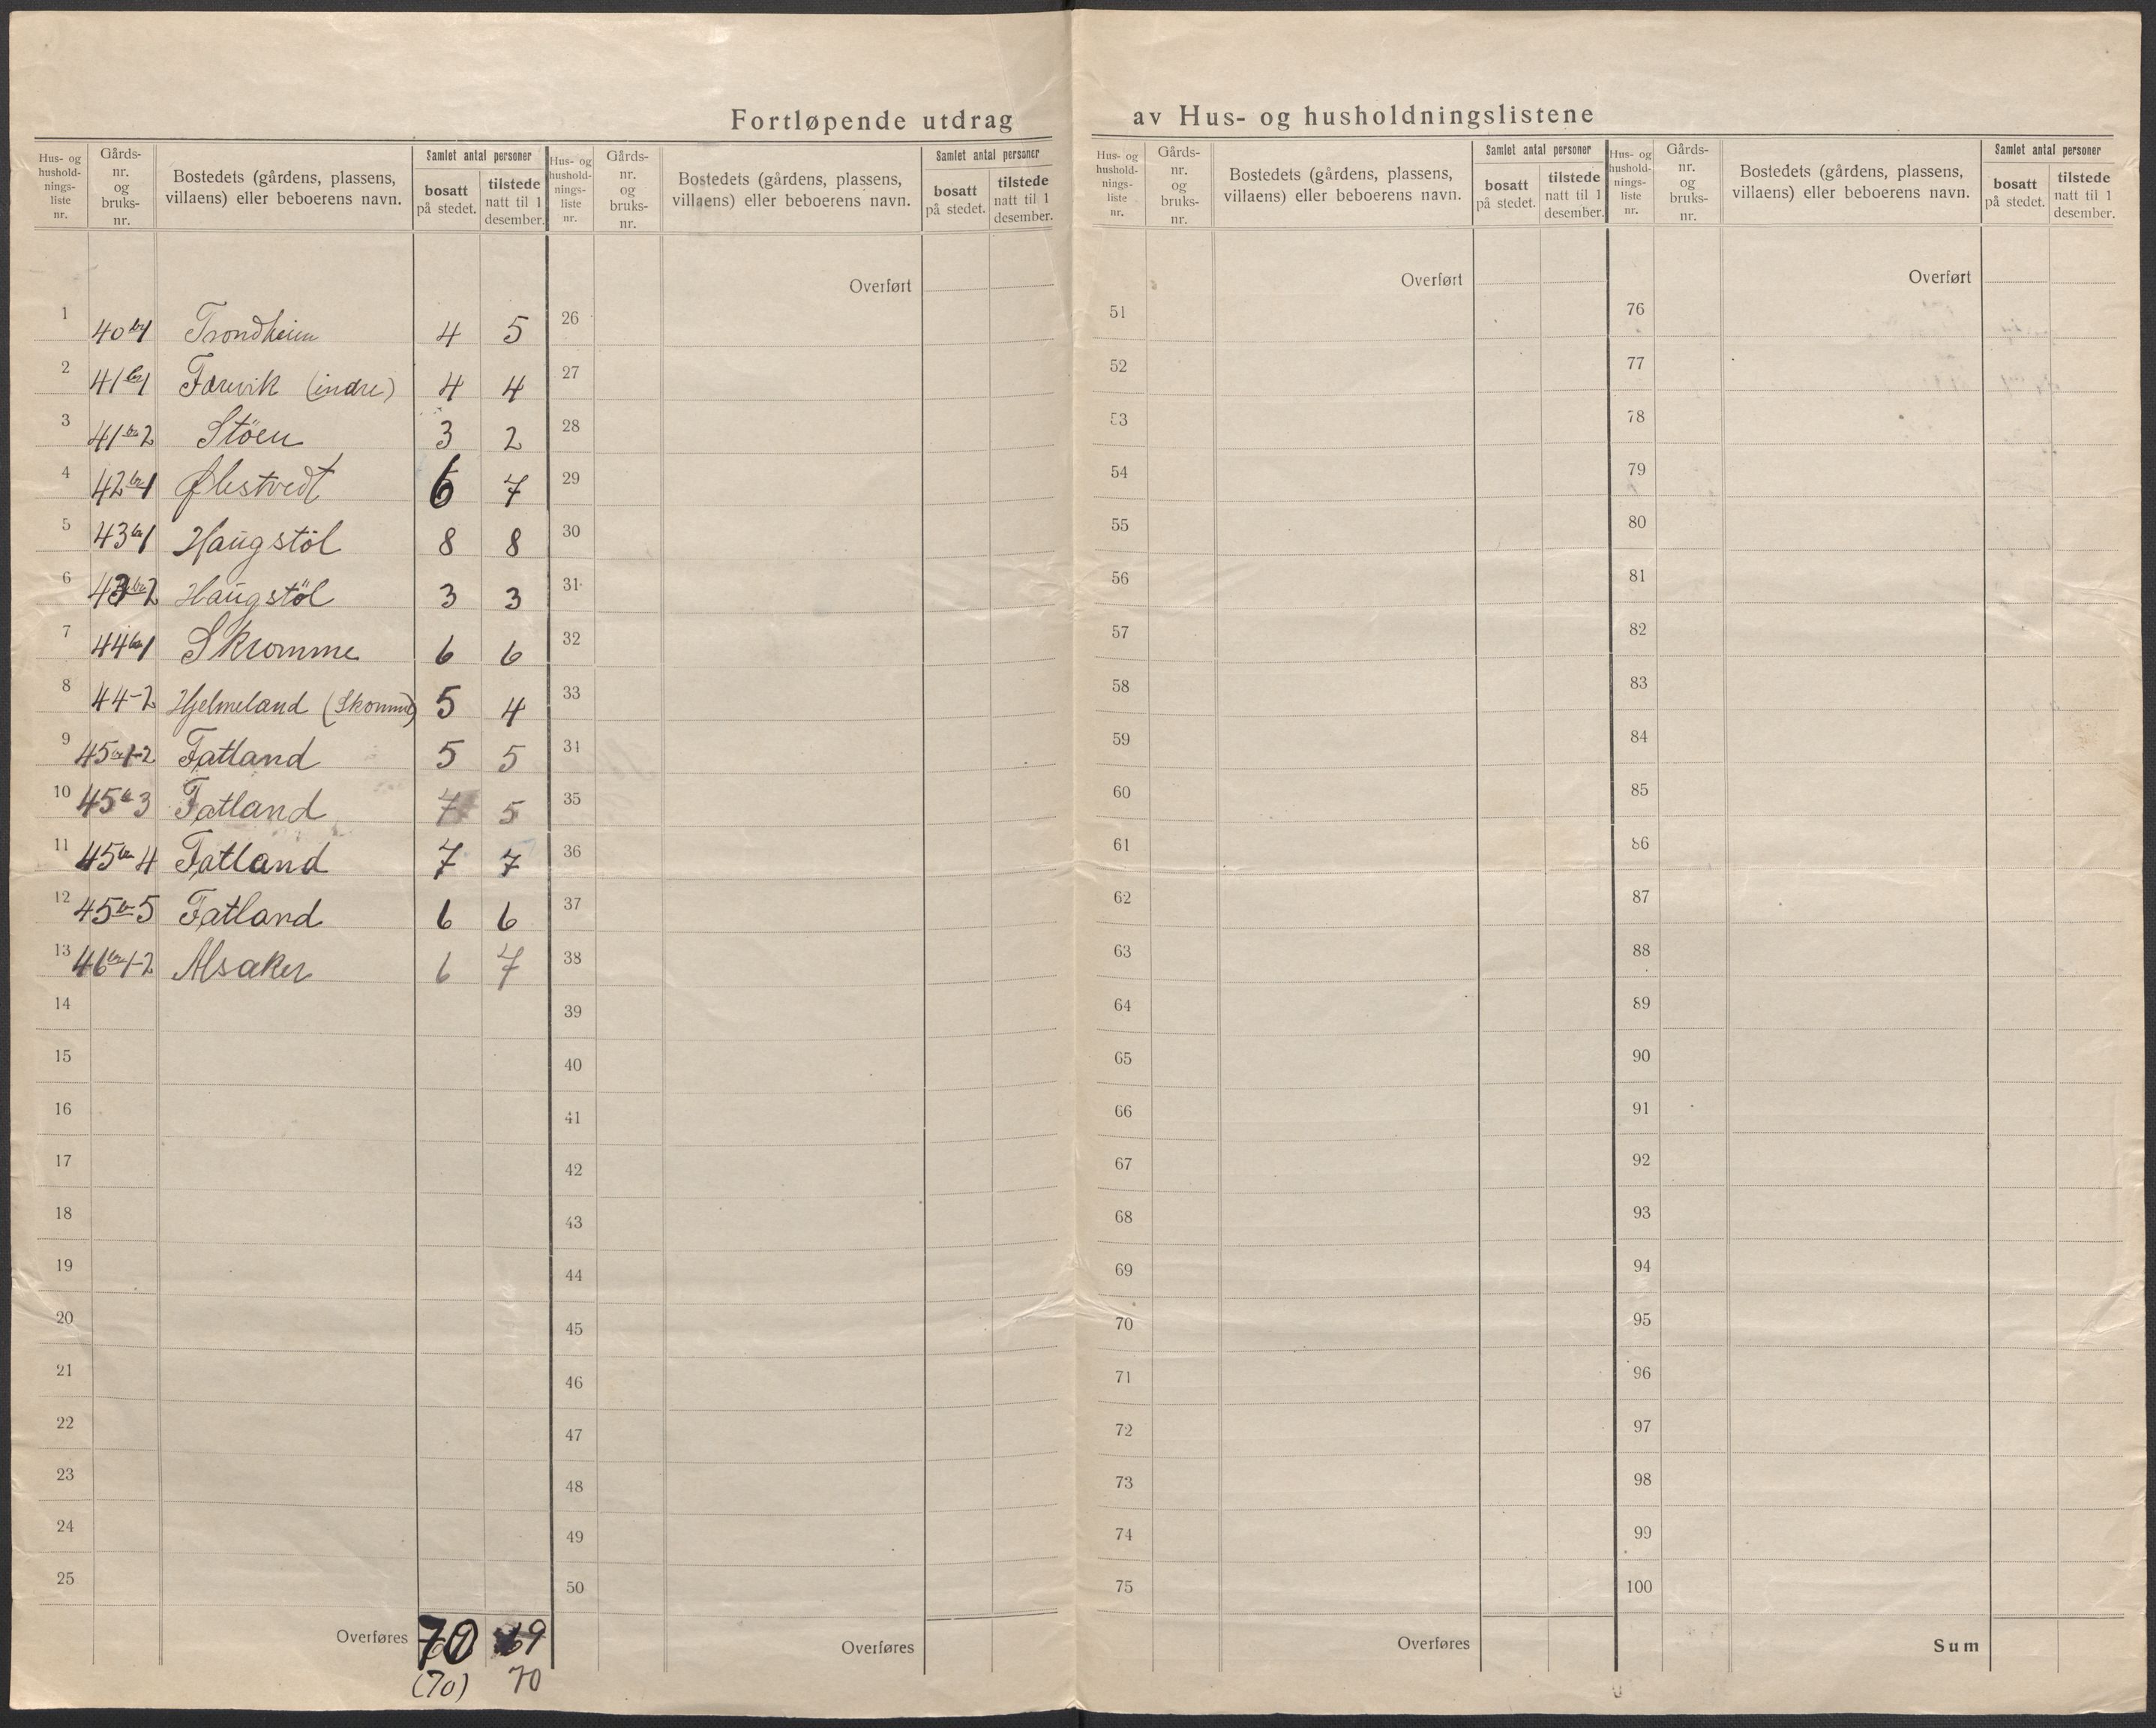 Fortløpende utdrag av Hus- og husholdningslistene
Hus- og hushold-nings-liste nr. Gårds-nr. og bruks-nr. Bostedets (gårdens, plassens, villaens) eller beboerens navn. Samlet antal personer bosatt på stedet. tilstede natt til 1 desember.
Hus- og hushold-nings-liste nr. Gårds-nr. og bruks-nr. Bostedets (gårdens, plassens, villaens) eller beboerens navn. Samlet antal personer bosatt på stedet. tilstede natt til 1 desember.
Hus- og hushold-nings-liste nr. Gårds-nr. og bruks-nr. Bostedets (gårdens, plassens, villaens) eller beboerens navn. Samlet antal personer bosatt på stedet. tilstede natt til 1 desember.
Hus- og hushold-nings-liste nr. Gårds-nr. og bruks-nr. Bostedets (gårdens, plassens, villaens) eller beboerens navn. Samlet antal personer bosatt på stedet. tilstede natt til 1 desember.
1 40 br 1 Trondheim 4 5
2 41 br 1 Farevik (indre) 4 4
3 41 br 2 Stöen 3 2
4 42 br 1 Ølestvedt 6 7
5 43 br 1 Haugstöl 8 8
6 43 br 2 Haugstöl 3 3
7 44 br 1 Skromme 6 6
8 44-2 Hjelmeland 5 4
9 45 br 1-2 Fatland 5 5
10 45 br 3 Fatland 7 5
11 45 br 4 Fatland 7 7
12 45 br 5 Fatland 6 6
13 46 br 1-2 Alsaker 6 7
14
15
16
17
18
19
20
21
22
23
24
25
Overføres 70 69
(70) 70
Overført
26
27
28
29
30
31
32
33
34
35
36
37
38
39
40
41
42
43
44
45
46
47
48
49
50
Overføres
Overført
51
52
53
54
55
56
57
58
59
60
61
62
63
64
65
66
67
68
69
70
71
72
73
74
75
Overføres
Overført
76
77
78
79
80
81
82
83
84
85
86
87
88
89
90
91
92
93
94
95
96
97
98
99
100
Sum